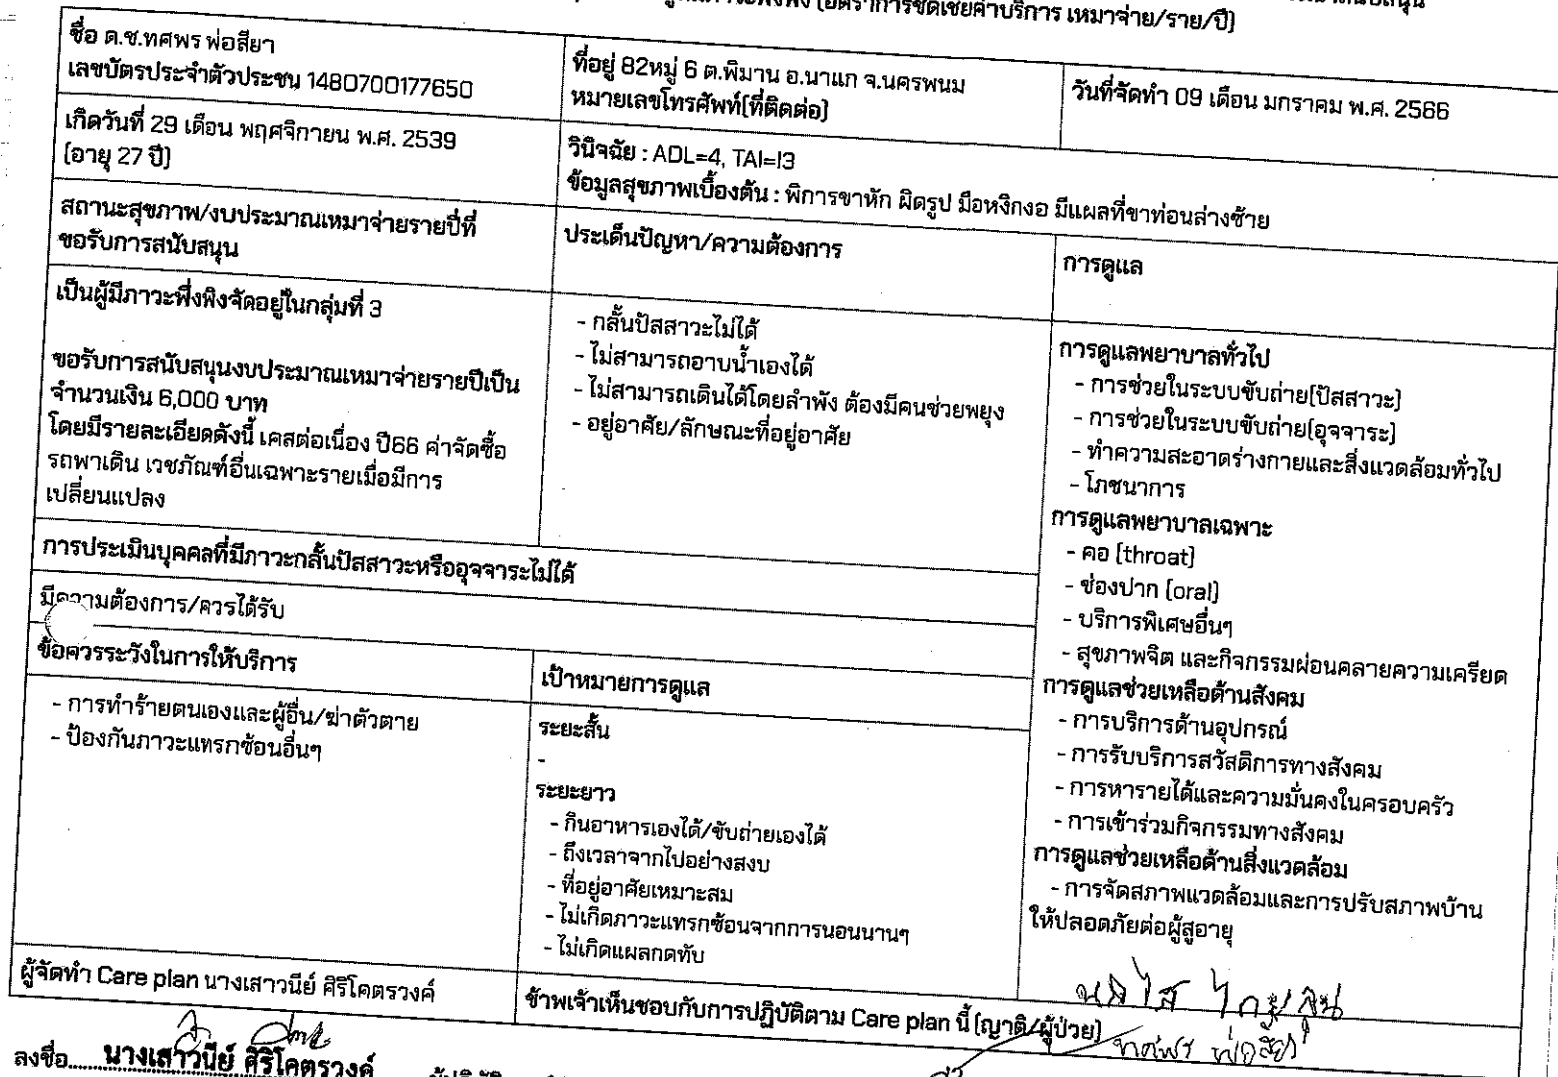 (อัตราการชดเชยค่าบริการ เหมาจ่าย/ราย/ปี)
ชื่อ ด.ช.ทศพร พ่อสียา
เลขบัตรประจำตัวประชน 1480700177650
ที่อยู่ 82หมู่ 6 ต.พิมาน อ.นาแก จ.นครพนม
หมายเลขโทรศัพท์(ที่ติดต่อ)
วันที่จัดทำ 09 เดือน มกราคม พ.ศ. 2566
เกิดวันที่ 29 เดือน พฤศจิกายน พ.ศ. 2539
(อายุ 27 ปี)
วินิจฉัย : ADL=4, TAI=I3
ข้อมูลสุขภาพเบื้องต้น : พิการขาหัก ผิดรูป มือหงิกงอ มีแผลที่ขาท่อนล่างซ้าย
สถานะสุขภาพ/งบประมาณเหมาจ่ายรายปีที่
ขอรับการสนับสนุน
ประเด็นปัญหา/ความต้องการ
การดูแล
เป็นผู้มีภาวะพึ่งพิงจัดอยู่ในกลุ่มที่ 3
ขอรับการสนับสนุนงบประมาณเหมาจ่ายรายปีเป็น
จำนวนเงิน 6,000 บาท
โดยมีรายละเอียดดังนี้ เคสต่อเนื่อง ปี66 ค่าจัดซื้อ
รถพาเดิน เวชภัณฑ์อื่นเฉพาะรายเมื่อมีการ
เปลี่ยนแปลง
- กลั้นปัสสาวะไม่ได้
- ไม่สามารถอาบน้ำเองได้
- ไม่สามารถเดินได้โดยลำพัง ต้องมีคนช่วยพยุง
- อยู่อาศัย/ลักษณะที่อยู่อาศัย
การดูแลพยาบาลทั่วไป
- การช่วยในระบบขับถ่าย(ปัสสาวะ)
- การช่วยในระบบขับถ่าย(อุจจาระ)
- ทำความสะอาดร่างกายและสิ่งแวดล้อมทั่วไป
- โภชนาการ
การดูแลพยาบาลเฉพาะ
- คอ (throat)
- ช่องปาก (oral)
- บริการพิเศษอื่นๆ
- สุขภาพจิต และกิจกรรมผ่อนคลายความเครียด
การดูแลช่วยเหลือด้านสังคม
- การบริการด้านอุปกรณ์
- การรับบริการสวัสดิการทางสังคม
- การหารายได้และความมั่นคงในครอบครัว
- การเข้าร่วมกิจกรรมทางสังคม
การดูแลช่วยเหลือด้านสิ่งแวดล้อม
- การจัดสภาพแวดล้อมและการปรับสภาพบ้าน
ให้ปลอดภัยต่อผู้สูอายุ
การประเมินบุคคลที่มีภาวะกลั้นปัสสาวะหรืออุจจาระไม่ได้
มีความต้องการ/ควรได้รับ
ข้อควรระวังในการให้บริการ
เป้าหมายการดูแล
- การทำร้ายตนเองและผู้อื่น/ฆ่าตัวตาย
- ป้องกันภาวะแทรกซ้อนอื่นๆ
ระยะสั้น
-
ระยะยาว
- กินอาหารเองได้/ขับถ่ายเองได้
- ถึงเวลาจากไปอย่างสงบ
- ที่อยู่อาศัยเหมาะสม
- ไม่เกิดภาวะแทรกซ้อนจากการนอนนานๆ
- ไม่เกิดแผลกดทับ
ผู้จัดทำ Care plan นางเสาวนีย์ ศิริโคตรวงค์
ข้าพเจ้าเห็นชอบกับการปฏิบัติตาม Care plan นี้ (ญาติ/ผู้ป่วย)
ทศพร พ่อสียา
ลงชื่อ.....นางเสาวนีย์ ศิริโคตรวงค์